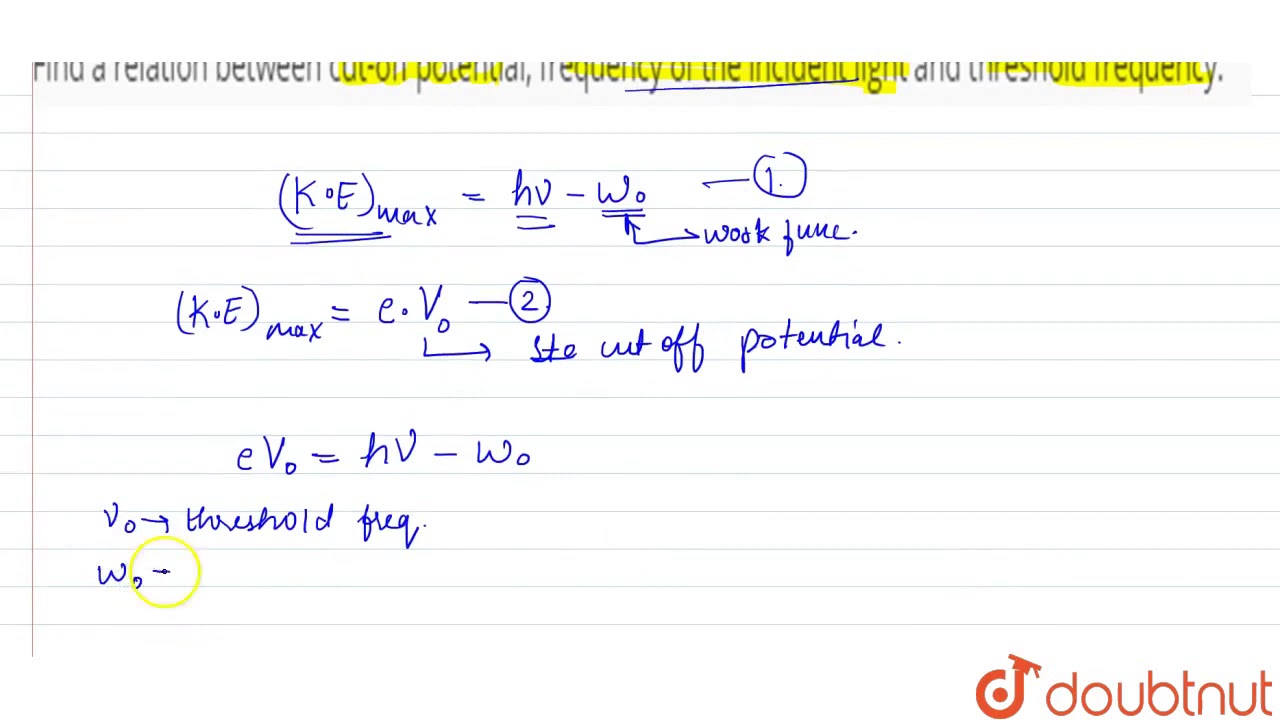 Find a relation between cut-off potential, frequency of the incident light and threshold frequency.
(K·E)max = hν - W₀ — 1.
work func.
(K·E)max = e·V₀ — 2
Ste cut off potential.
eV₀ = hν - W₀
ν₀ → threshold freq.
W₀ -
doubtnut